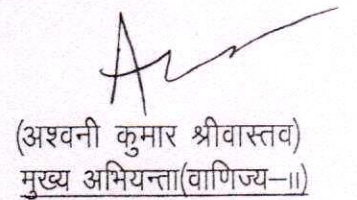 (अश्वनी कुमार श्रीवास्तव)
मुख्य अभियन्ता(वाणिज्य–II)